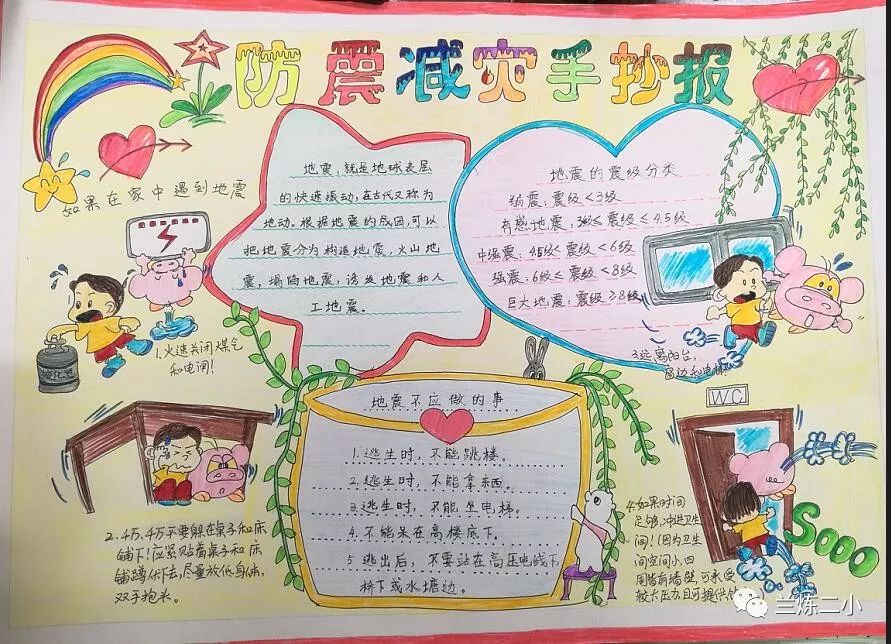 防震减灾手抄报
如果在家中遇到地震
地震,就是地球表层
的快速振动,在古代又称为
地动。根据地震的成因,可以
把地震分为构造地震,火山地
震,塌陷地震,诱发地震和人
工地震。
地震的震级分类
弱震:震级<3级
有感地震:3级≤震级≤4.5级
中强震:4.5级<震级<6级
强震:6级≤震级<8级
巨大地震:震级≥8级
1.火速关闭煤气
和电闸!
3.远离阳台,
窗边和电梯
地震不应做的事
1.逃生时,不能跳楼。
2.逃生时,不能拿东西。
3.逃生时,不能坐电梯。
4.不能呆在高楼底下。
5.逃出后,不要站在高压电线下,
桥下或水塘边。
2.千万,千万不要躲在桌子和床
铺下!应紧贴着桌子和床
铺蹲伏下去,尽量放低身体,
双手抱头。
WC
4.如果时间
足够,冲进卫生
间!(因为卫生
间空间小,四
周皆有墙壁,可承受
较大压力且可提供
Sooo
兰炼二小